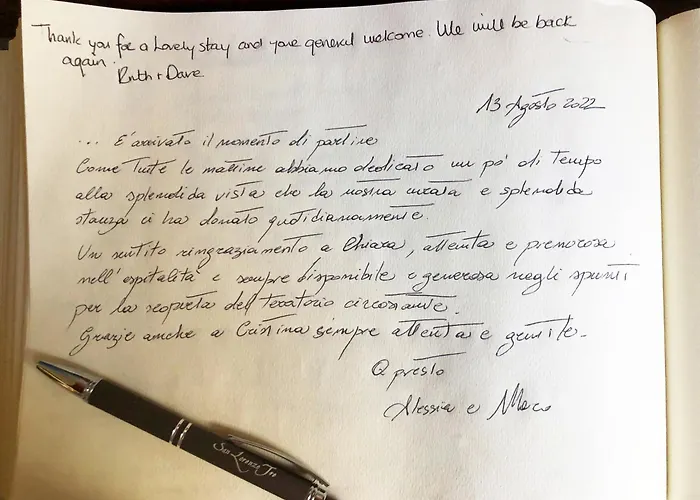 Thank you for a lovely stay and your general welcome. We will be back
again.
Ruth + Dave
13 Agosto 2022
... E' arrivato il momento di partire
Come tutte le mattine abbiamo dedicato un po' di tempo
alla splendida vista che la nostra curata e splendida
stanza ci ha donato quotidianamente.
Un sentito ringraziamento a Chiara, attenta e premurosa
nell'ospitalità e sempre disponibile e generosa negli spunti
per la scoperta del territorio circostante.
Grazie anche a Cristina sempre attenta e gentile.
A presto
Alessia e
San Lorenzo